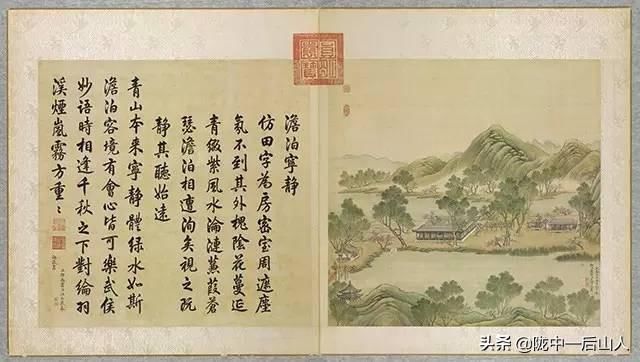 澹泊寧靜
仿田字為房密室周遮塵
氛不到其外槐陰花蔓延
青綴紫風水淪漣蒹葭蒼
瑟澹泊相遭洵矣視之既
靜其聽始遠
青山本來寧靜體綠水如斯
澹泊容境有會心皆可樂武侯
妙語時相逢千秋之下對綸羽
溪煙嵐霧方重〻
头条 @陇中一后山人